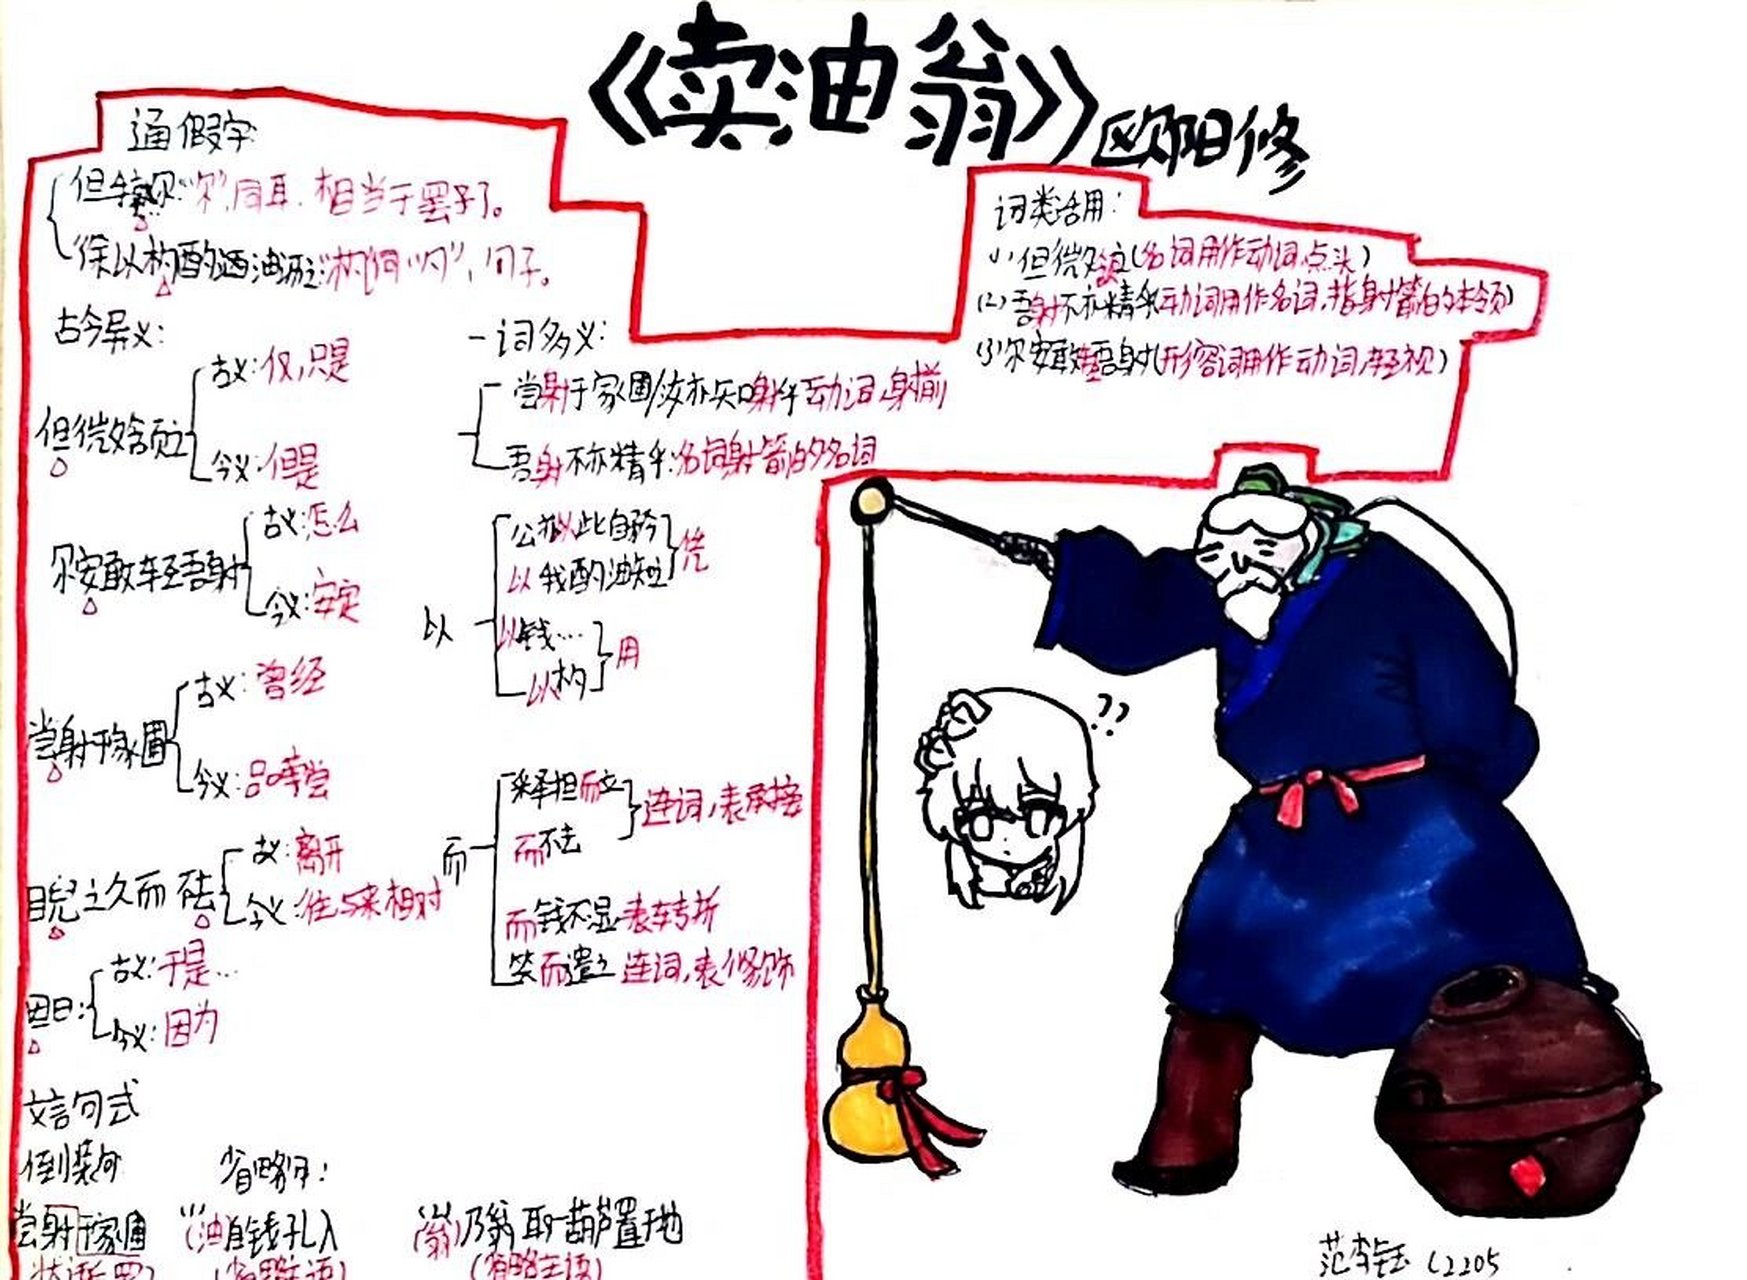 《卖油翁》欧阳修
通假字
但手熟尔:“尔”,同耳.相当于罢了。
徐以杓酌油沥之:“杓”同“勺”,勺子。
古今异义:
但微颔之
古义:仅,只是
今义:但是
尔安敢轻吾射
古义:怎么
今义:安定
当射于家圃
古义:曾经
今义:品尝
睨之久而不去
古义:离开
今义:往与来相对
因曰:
古义:于是…
今义:因为
一词多义:
尝射于家圃/汝亦知射乎动词,射箭
吾射不亦精乎:名词射箭的名词
以
公亦以此自矜
以我酌油知之
凭
以钱…
以杓
用
而
释担而立
而不去
连词,表承接
而钱不湿 表转折
笑而遣之 连词,表修饰
词类活用:
(1)但微颔之(名词用作动词,点头)
(2)吾射不亦精乎动词用作名词,指射箭的本领)
(3)尔安敢轻吾射(形容词用作动词,轻视)
??
文言句式
倒装句
省略句:
尝射于家圃
(油)自钱孔入
(省略主语)
(翁)乃翁取一葫芦置于地
(省略主语)
C2205